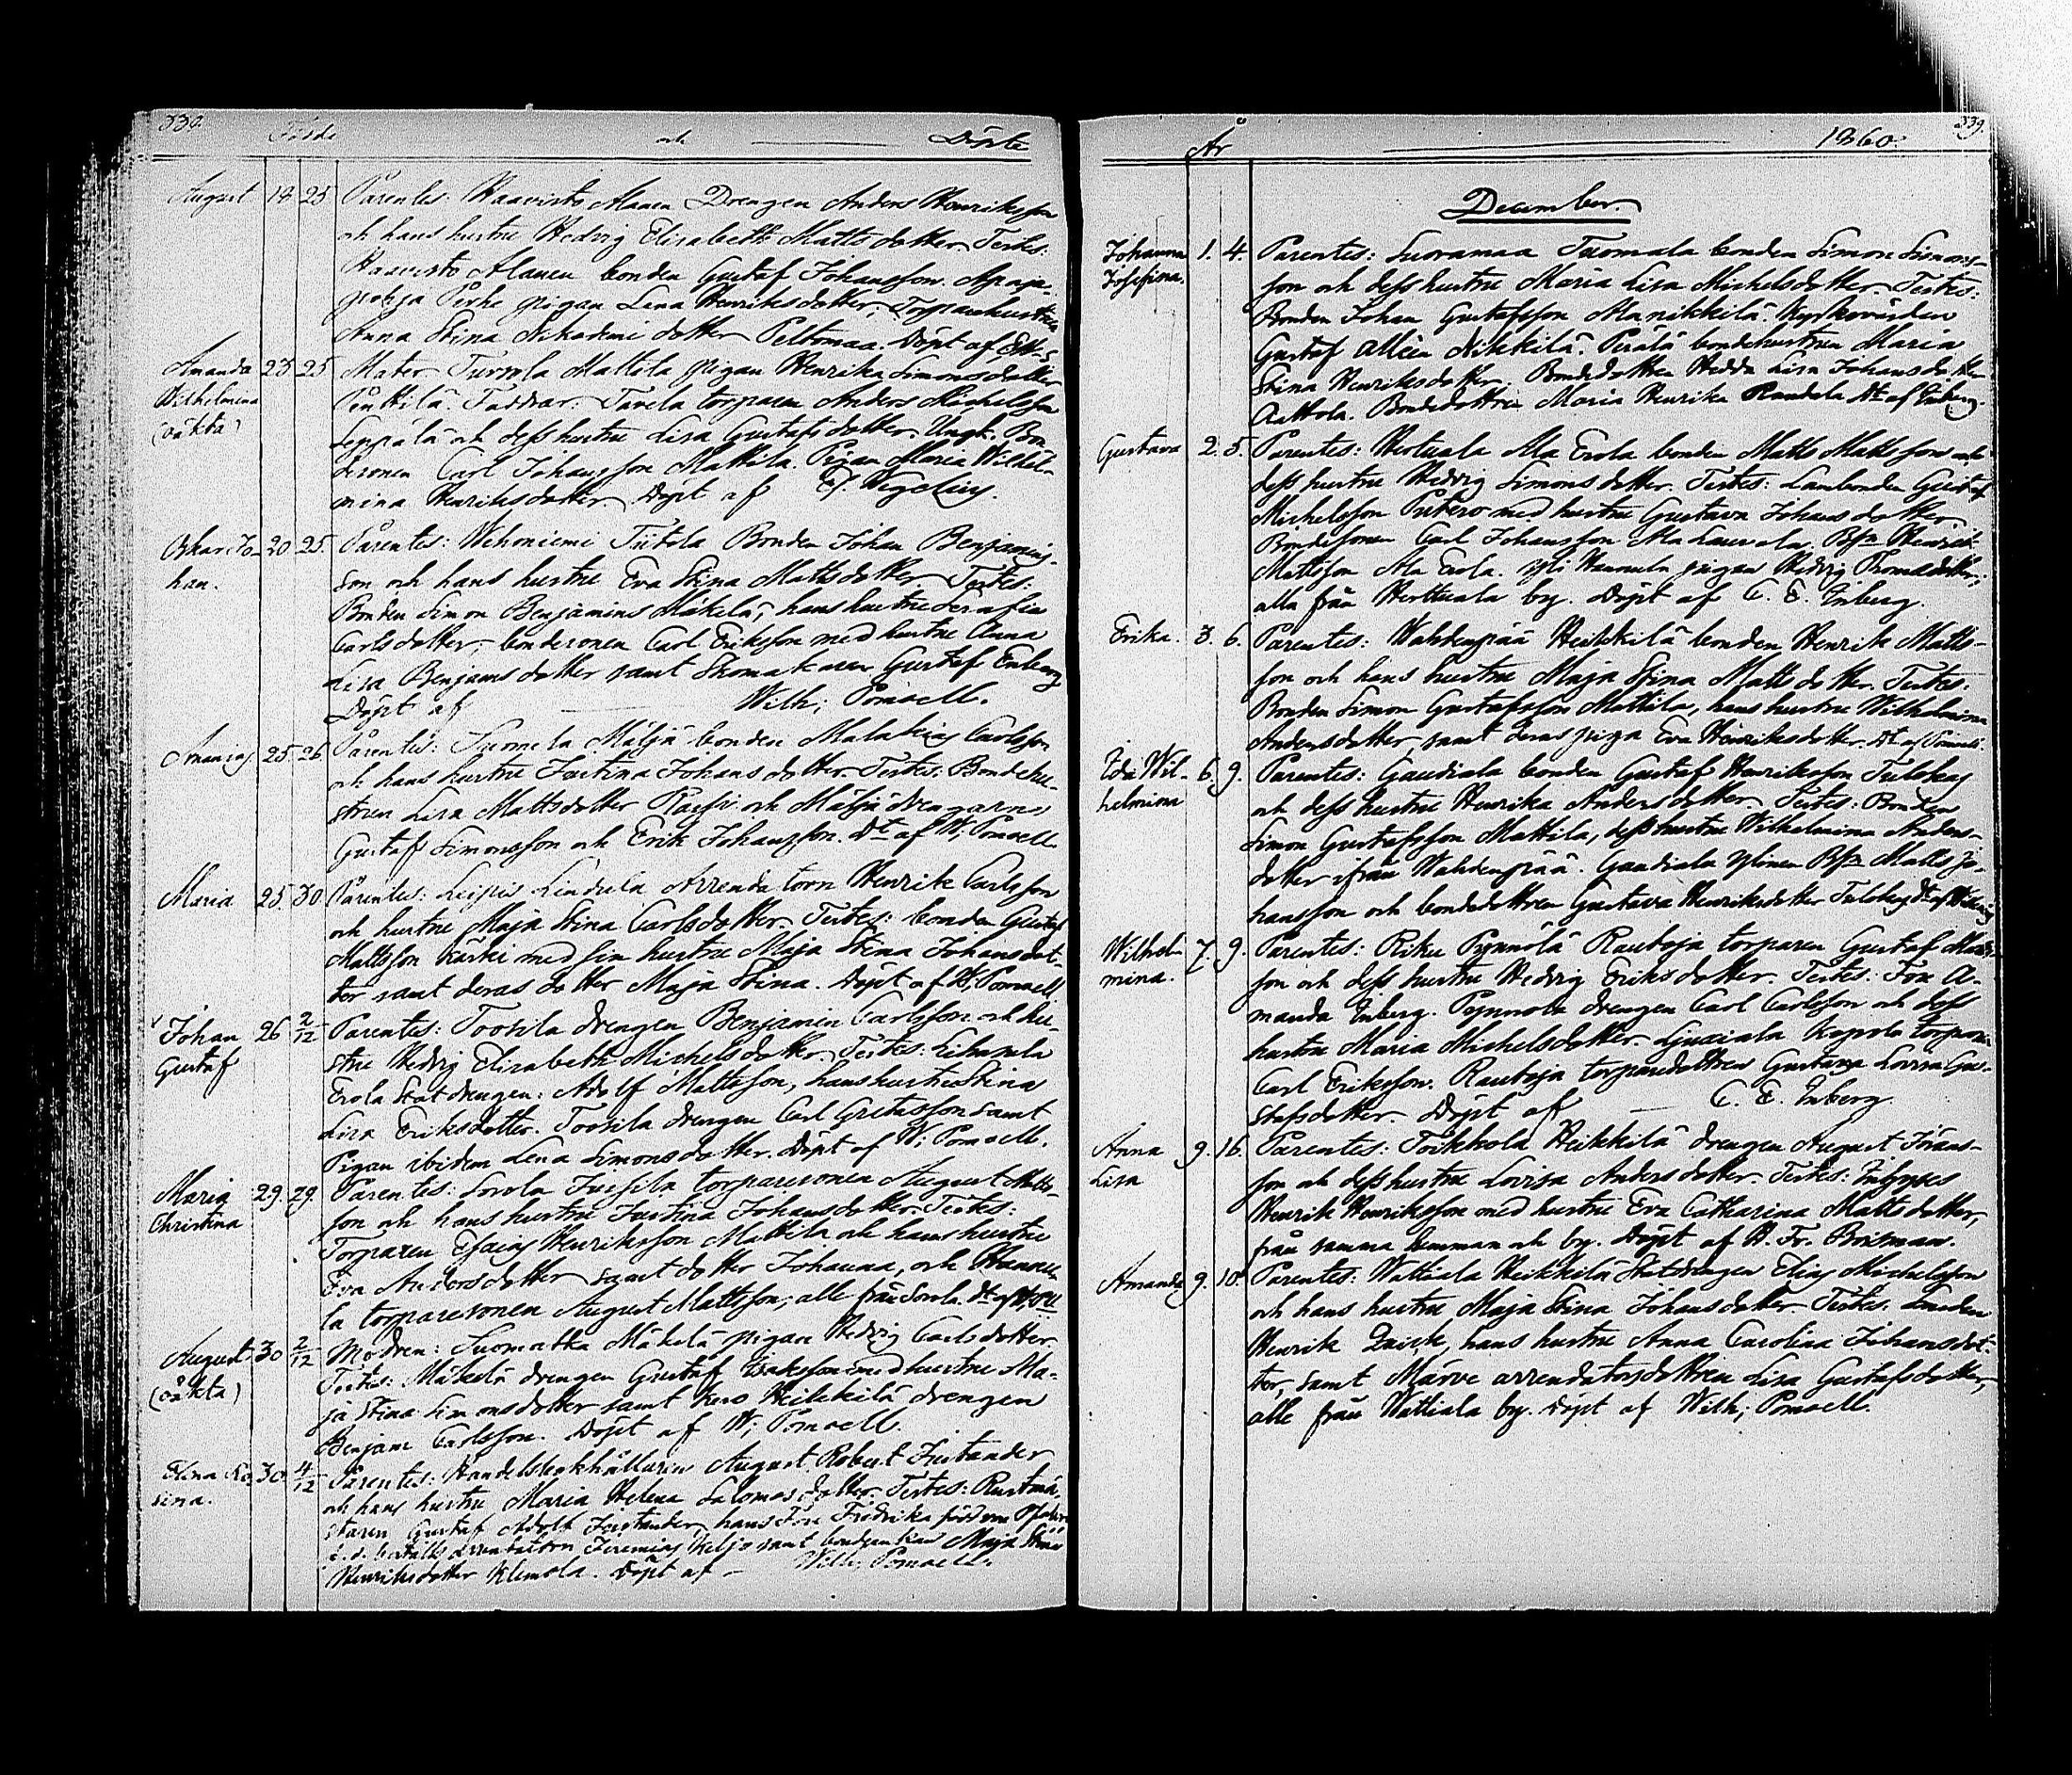 Födde och Döpte
August 14 25 Parentes: Haavisto Alanen Drengen Anders Henriksson
och hans hustru Hedvig Elisabeth Mattsdotter Testes:
Haavisto Alanen bonden Gustaf Johansson.
Perhe pigan Lena Henriksdotter, Torparehustrun
Anna Stina dotter Peltomaa. Döpt af
Amanda 23 25 Mater: Turvola Mattila pigan Henrika Simonsdotter
Wilhelmina Penttilä. Faddrar: Tavela torparen Anders Michelsson
(oäkta) Leppälä och dess hustru Lisa Gustafsdotter. Ungk. Bon
desonen Carl Johansson Mattila. Pigan Maria Wilhel-
mina Henriksdotter. Döpt af Wegelius.
Oskar Jo- 20 25. Parentes: Wehoniemi Tiitola Bonden Johan Benjamins-
han. son och hans hustru Eva Stina Mattsdotter Testes:
Bonden Simon Benjamins Mäkelä, hans hustru Serafia
Carlsdotter, bondesonen Carl Eriksson med hustru Anna
Lisa Benjamsdotter samt Skomakaren Gustaf Enberg
Döpt af Wilh; Pomoell.
Ananias 25. 26. Parentes: Suomela Mäljä bonden Malakias Carlsson
och hans hustru Justina Johansdotter. Testes: Bondehu-
strun Lisa Mattsdotter Passi och Mäljä drengarne
Gustaf Simonsson och Erik Johansson. Dt af W; Pomoell
Maria 25. 30. Parentes: Lindula Arrendatorn Henrik Carlsson
och hustru Maja Stina Carlsdotter. Testes: bonden Gustaf
Mattsson Kärki med sin hustru Maja Stina Johansdot-
ter samt deras dotter Maja Stina. Döpt af W; Pomoell
Johan 26 2/12 Parentes: Tootila drengen Benjamin Carlsson och hu-
Gustaf stru Hedvig Elisabeth Michelsdotter. Testes: Lihasula
Erola Statdrengen: Adolf Mattsson, hans hustru Stina
Lisa Eriksdotter. Tootila drengen Carl Gustafsson samt
Pigan ibidem Lena Simonsdotter. Döpt af W; Pomoell.
Maria 29. 29. Parentes: Sorola Jussila torparesonen August Matts-
Christina son och hans hustru Justina Johansdotter. Testes:
Torparen Esaias Henriksson Mattila och hans hustru
Eva Andersdotter samt dotter Johanna, och Hannu-
la torparesonen August Mattsson; alle från Sorola. Dt af W; Pll
August 30 2/12 Modren: Suomatka Mäkelä pigan Hedvig Carlsdotter
(oäkta) Testes: Mäkelä drengen Gustaf Isaksson med hustru Ma-
ja Stina Simonsdotter samt Kero Heikkilä drengen
Benjam Carlsson. Döpt af W; Pomoell.
Elina Ro- 30. 4/12 Parentes: Handelsbokhållaren August Robert Justander
sina. och hans hustru Maria Helena Salomosdotter. Testes: Rustmä-
staren Gustaf Adolf Justander, hans Fru Fredrika född von
Jeremias Keljo samt bondeenkan Maja Stina
Henriksdotter Klemola. Döpt af Wilh; Pomoell.
339.
År 1860.
December.
Johanna 1. 4. Parentes: Suoramaa Tuomala bonden Simon Simons-
Josefina. son och dess hustru Maria Lisa Michelsdotter. Testes:
Bonden Johan Gustafsson Manikkilä. Kyrkovärden
Gustaf Allén Nikkilä. Perälä bondehustrun Maria
Stina Henriksdotter. Bondedottren Hedda Lisa Johansdotter
Aattola. Bondedottren Maria Henrika Randala Dt af Inberg.
Gustava 2. 5. Parentes: Hertuala Ala Erola bonden Matts Mattsson och
dess hustru Hedvig Simonsdotter. Testes: Lanbonden Gustaf
Michelsson Putero med hustru Gustava Johansdotter
Bondesonen Carl Johansson Alahannula. Bsn Henrik
Mattsson Ala Erola. Yli Hannula pigan Hedvig Thomasdotter:
alla från Herttuala by. Döpt af C. E. Inberg.
Erika. 3. 6. Parentes: Wahdenpää Heikkilä bonden Henrik Matts-
son och hans hustru Maja Stina Mattsdotter. Testes:
Bonden Simon Gustafsson Mattila, hans hustru Wilhelmina
Andersdotter, samt deras piga Eva Henriksdotter. Dt af Pomoell.
Ida Wil- 6. 9. Parentes: Gaudiala bonden Gustaf Henriksson Tulokas
helmina och dess hustru Henrika Andersdotter. Testes: Bonden
Simon Gustafsson Mattila, dess hustru Wilhelmina Anders-
dotter ifrån Wahdenpää. Gaudiala Ylinen Bsn Matts Jo-
hansson och bondedottren Gustava Henriksdotter Tulokas Dt af
Wilhel- 7. 9. Parentes: Riku Pynnölä Rautoja torparen Gustaf
mina. son och dess hustru Hedvig Eriksdotter. Testes: Frn A-
manda Inberg. Pynnölä drengen Carl Carlsson och dess
hustru Maria Michelsdotter. Ljuxiala torparen
Carl Eriksson. Rautoja torparedottren Gustava Lovisa Gu-
stafsdotter. Döpt af C. E. Inberg.
Anna 9. 16. Parentes: Tokkola Heikkilä drengen August Jöans-
Lisa son och dess hustru Lovisa Andersdotter. Testes: Inhyses
Henrik Henriksson med hustru Eva Catharina Mattsdotter,
från samma hemman och by. Döpt af B. Fr. Brisman.
Amanda 9. 10. Parentes: Wattiala Heikkilä Statdrengen Elias Michelsson
och hans hustru Maja Stina Johansdotter. Testes: Smeden
Henrik Qvick, hans hustru Anna Carolina Johansdot-
ter, samt Märve arrendatorsdottren Lisa Gustafsdotter,
alle från Wattiala by. Döpt af Wilh; Pomoell.